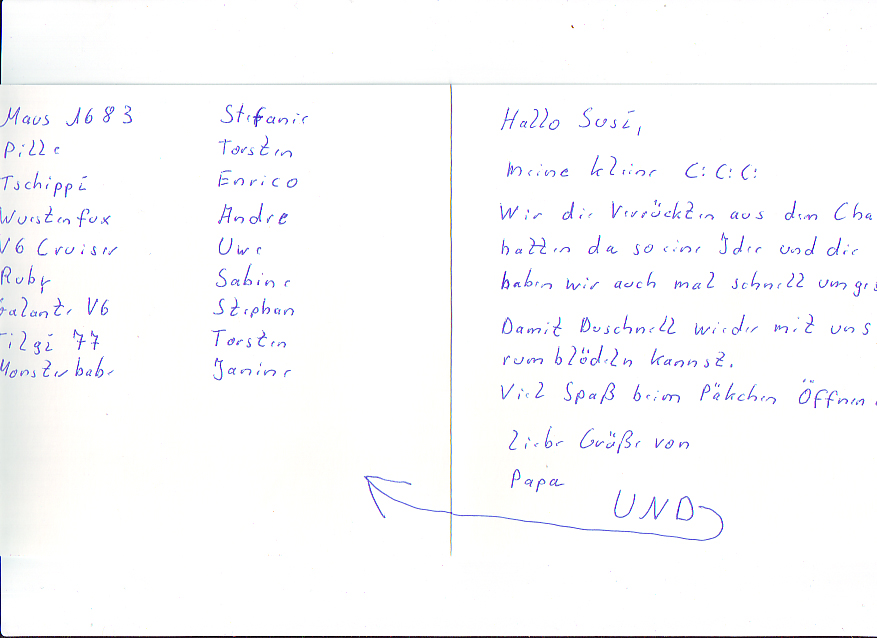 Maus 1683 Stefanie
Pille Torsten
Tschippi Enrico
Wüstenfux Andre
V6 Cruiser Uwe
Ruby Sabine
Galante V6 Stephan
Tilgi 77 Torsten
Monsterbabe Janine
Hallo Susi,
meine kleine C:C:C:
Wir die Verrückten aus dem Cha
hatten da so eine Idee und die
haben wir auch mal schnell umges
Damit Duschnell wieder mit uns
rum blödeln kannst.
Viel Spaß beim Päkchen Öffnen
Liebe Grüße von
Papa
UND